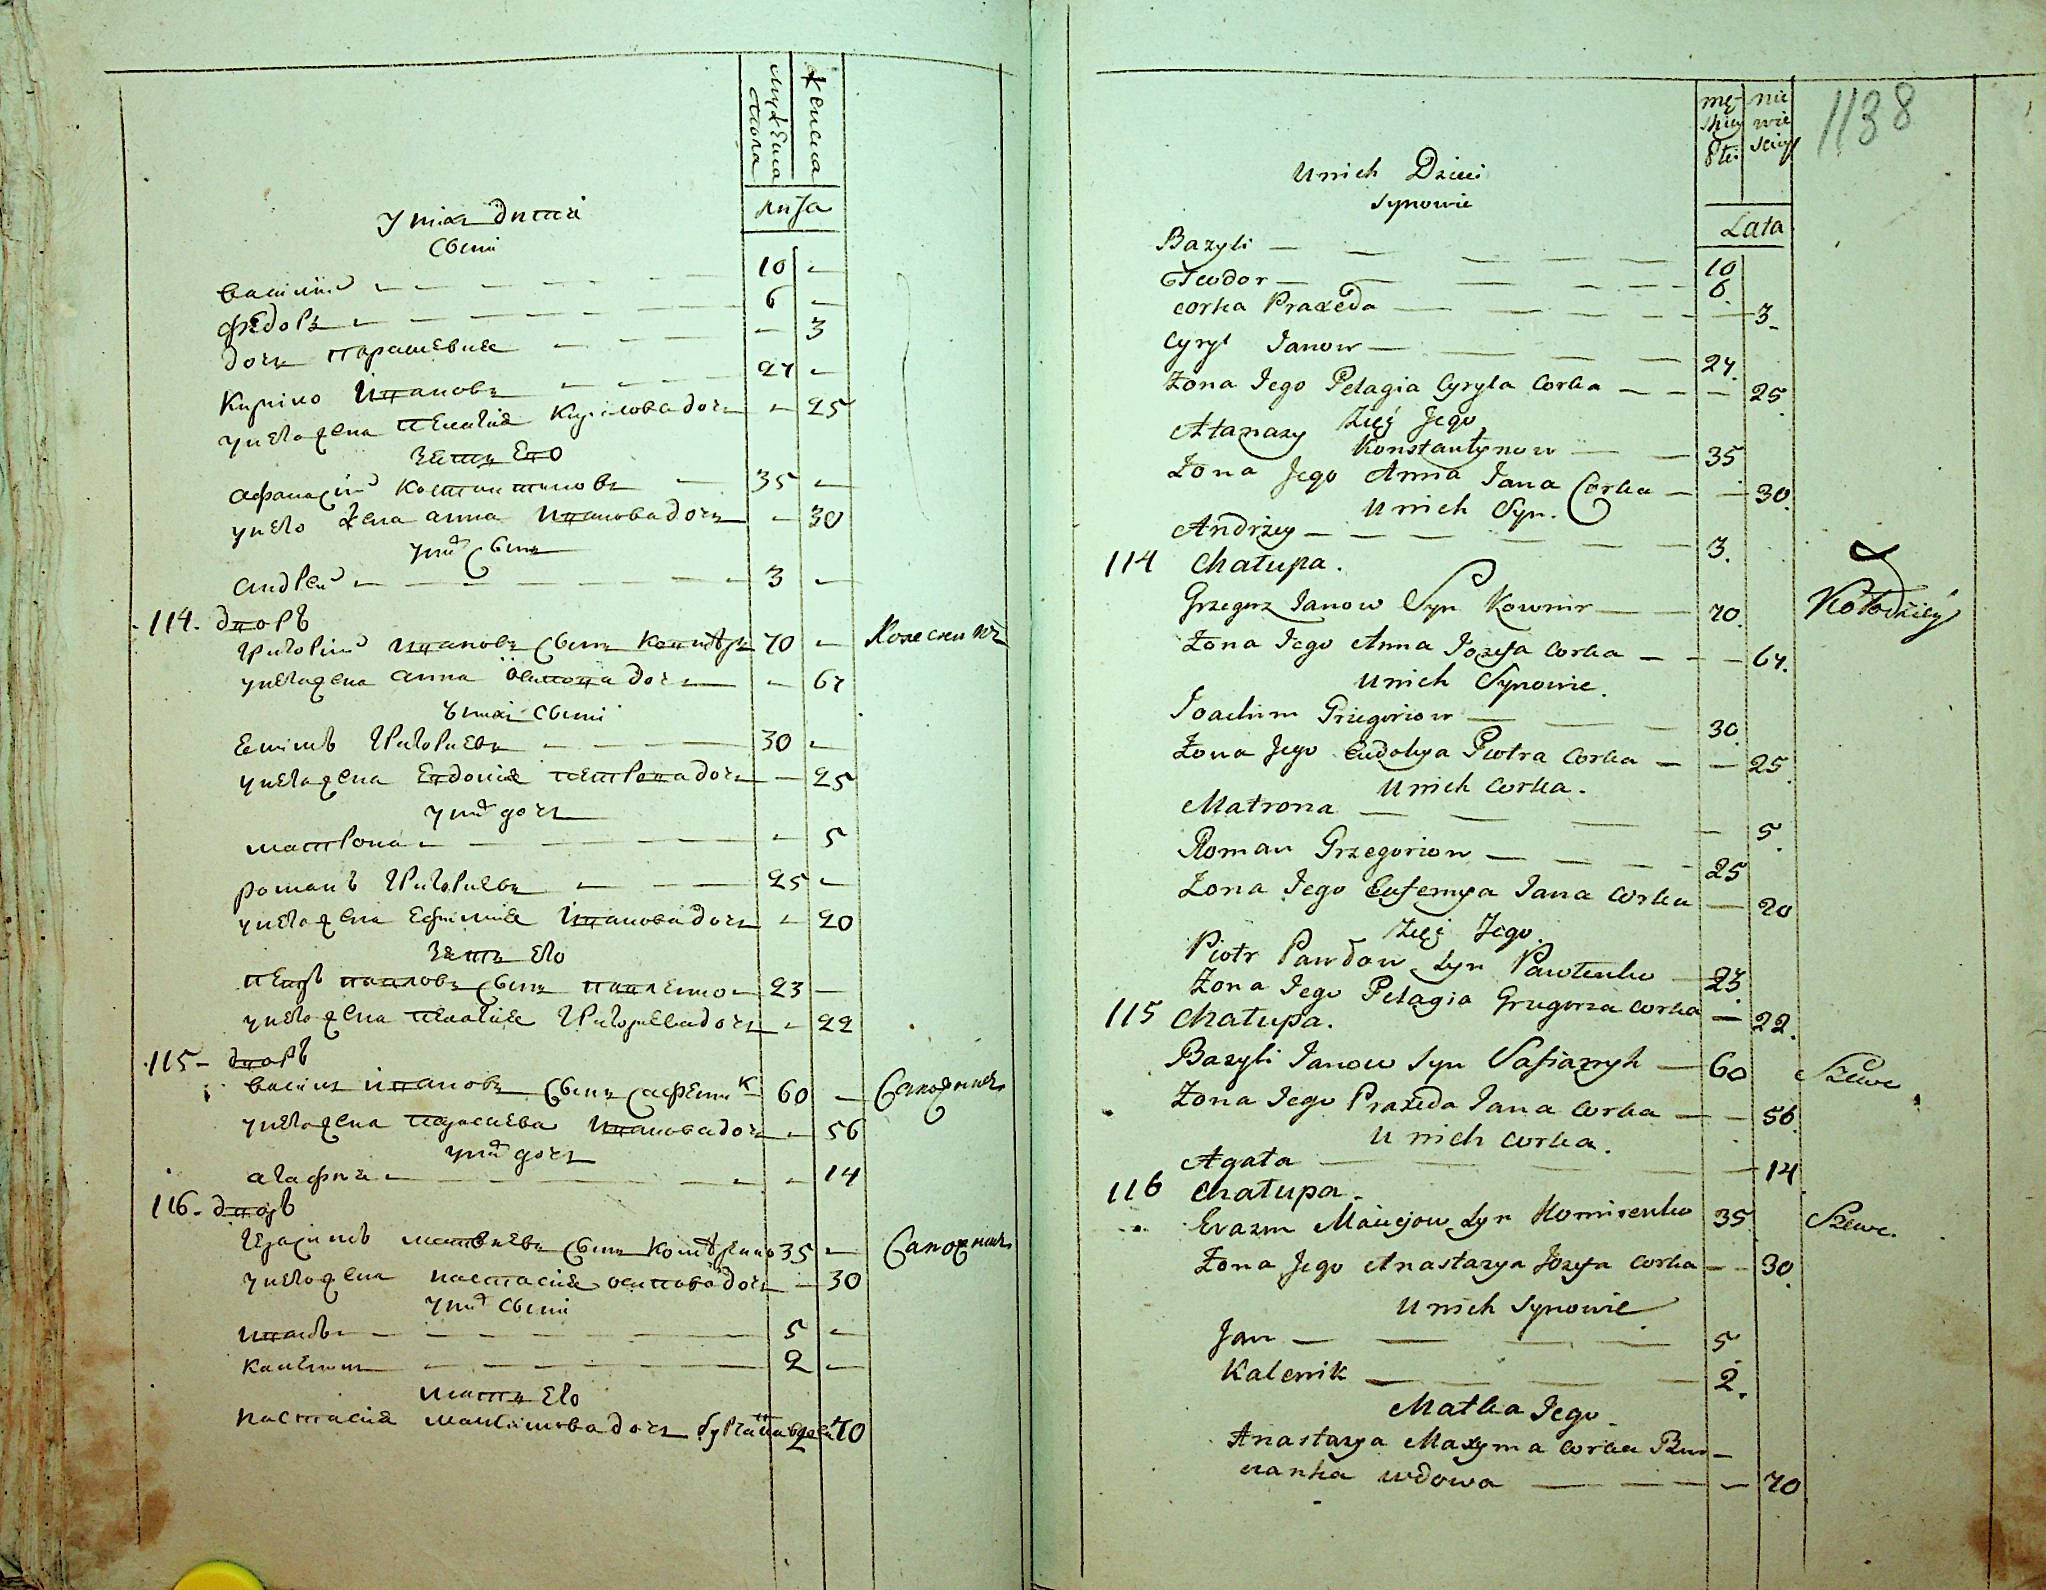 мужеска пола
женска
лѣта
У нихъ дѣти
Сыни
Василий — 10 —
Федоръ — 6 —
дочь Парашевия — — 3
Кирило Ивановъ — 27 —
у него жена Пелагия Кирилова дочь — 25
Зять Его
Афанасий Костантиновъ — 35 —
у него жена анна Иванова дочь — 30
у них Сынъ
андрей — 3 —
114. дворъ
Григорий Ивановъ Сынъ 70 — Колесникъ
у него жена анна Осипова дочь — 67
У них Сыни
Екимъ Григориевъ — 30 —
у него жена Евдокия петрова дочь — 25
у них дочь
матрона — — 5
романъ Григориевъ — 25 —
у него жена Ефимия Иванова дочь — 20
Зять его
петръ павловъ Сынъ павленко — 23 —
у него жена Пелагия Григорьева дочь — 22
115 - дворъ
Василь ивановъ Сынъ 60 — Сапожникъ
у него жена параскева Иванова дочь — 56
у них дочь
агафия — — 14
116. дворъ
Герасимъ матвиевъ Сынъ 35 — Сапожникъ
у него жена настасия осипова дочь — 30
у них Сыни
иванъ — 5 —
каленик — 2 —
мать Его
настасия максимова дочь 70
1138
mę-
skiey
Płci
nie
wie
sciey
Lata
U nich Dzieci
Synowie
Bazyli — 10
Teodor — 6.
corka Praxeda — 3.
Cyryl Janow — 27.
Zona Jego Pelagia Cyryla Corka — 25
Zięć Jego
Atanazy Konstantynow — 35
Zona Jego Anna Jana Corka — 30.
U nich Syn.
Andrzey — 3.
114 Chałupa.
Grzegorz Janow Syn Kownir — 70. Kołodziey
Zona Jego Anna Jozefa corka — 67.
U nich Synowie.
Joachim Grzegoriow — 30.
Zona Jego Eudokya Piotra Corka — 25.
U nich corka.
Matrona — 5.
Roman Grzegoriow — 25
Zona Jego Eufemya Jana corka — 20
Zięć Jego.
Piotr Pawłow Syn Pawlenko — 23.
Zona Jego Pelagia Grzegorza corka — 22.
115 Chałupa.
Bazyli Janow Syn Safiannyk — 60 Szewc
Zona Jego Praxeda Jana corka — 56.
U nich corka.
Agata — 14
116 Chałupa.
Erazm Maciejow Syn Komirenko 35 Szewc.
Zona Jego Anastazya Jozefa corka — 30.
U nich Synowie
Jan — 5
Kalenik — 2.
Matka Jego
Anastazya Maxyma corka Bur-
czanka wdowa — 70